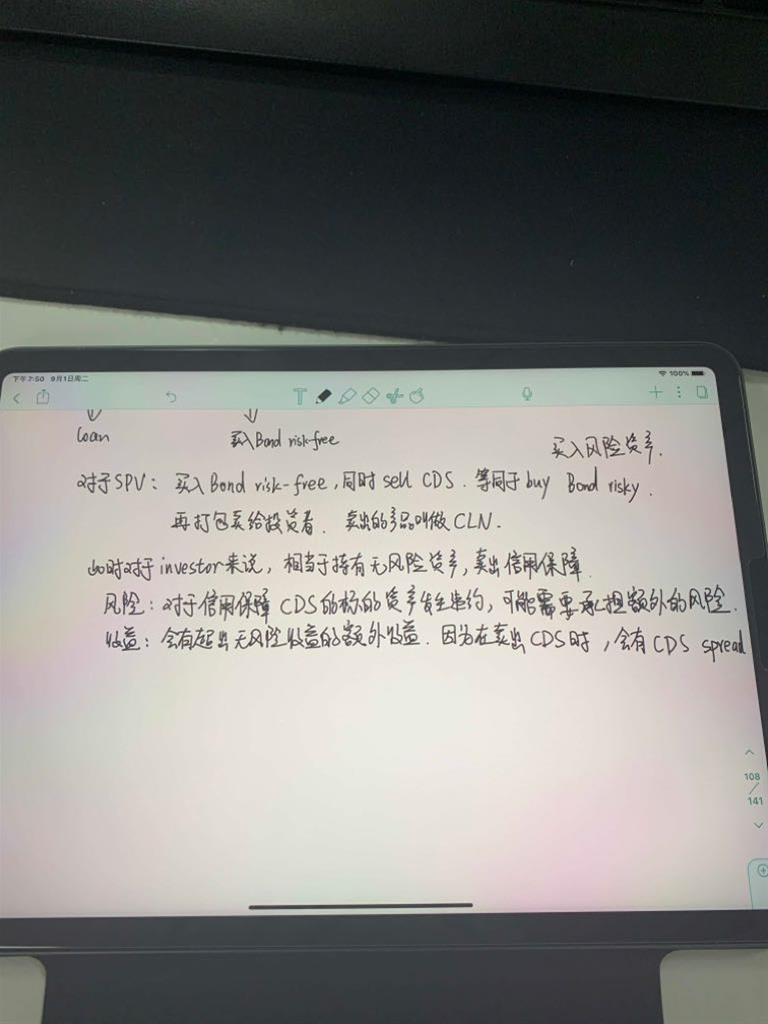 下午7:50 9月1日周二
100%
T
loan
买入Bond risk-free
买入风险资产.
对于SPV: 买入Bond risk-free, 同时 sell CDS. 等同于 buy Bond risky.
再打包卖给投资者. 卖出的产品叫做 CLN.
此时对于 investor来说, 相当于持有无风险资产, 卖出信用保障.
风险: 对于信用保障 CDS的标的资产发生违约, 可能需要承担额外的风险.
收益: 会有超出无风险收益的额外收益. 因为在卖出CDS时, 会有 CDS spread
108
/
141